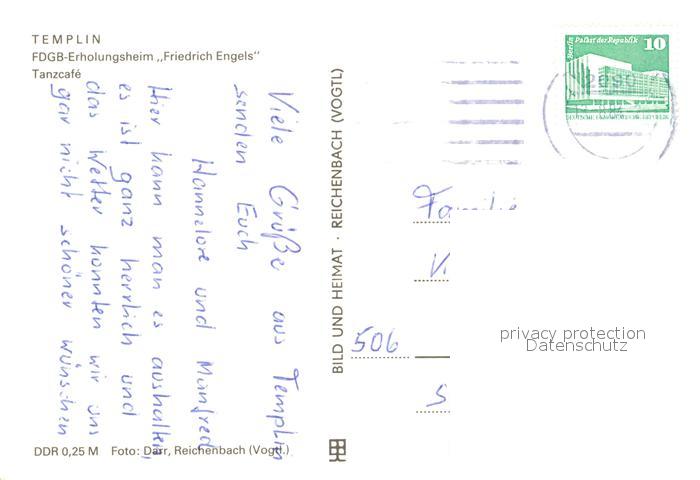 TEMPLIN
FDGB-Erholungsheim „Friedrich Engels“
Tanzcafé
Viele Grüße aus Templin
senden Euch
Hannelore und Manfred
Hier kann man es aushalten,
es ist ganz herrlich und
das Wetter konnten wir uns
gar nicht schöner wünschen
DDR 0,25 M Foto: Darr, Reichenbach (Vogtl.)
BILD UND HEIMAT · REICHENBACH (VOGTL)
Berlin Palast der Republik
10
DEUTSCHE DEMOKRATISCHE REPUBLIK
Familie
506
privacy protection
Datenschutz